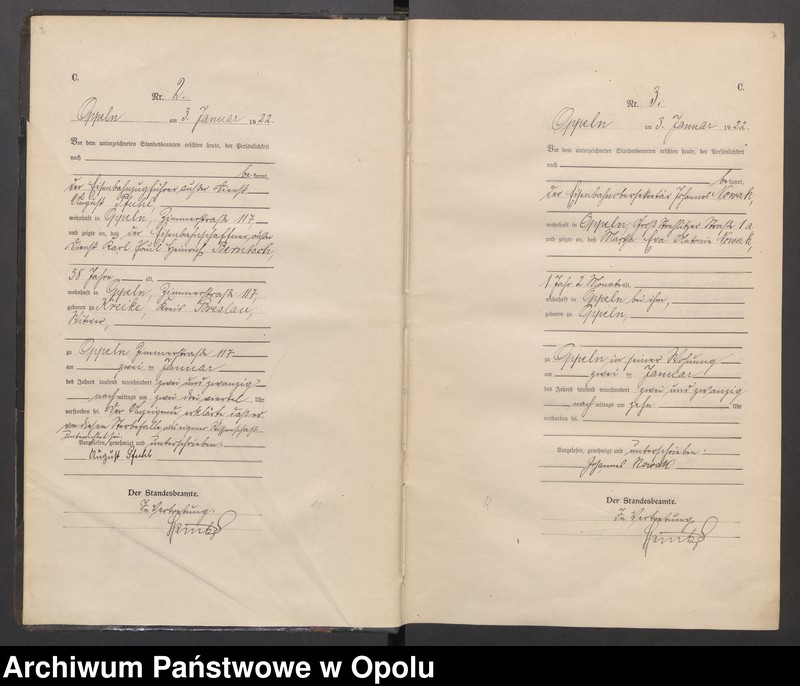 C.
Nr. 2.
Oppeln am 3. Januar 1922.
Vor dem unterzeichneten Standesbeamten erschien heute, der Persönlichkeit
nach
be kannt,
der Eisenbahnzugführer außer Dienst
August
wohnhaft in Oppeln, Zimmerstraße 117,
und zeigte an, daß der Eisenbahnschaffner außer
Dienst Karl Paul Heinrich
58 Jahre alt,
wohnhaft in Oppeln, Zimmerstraße 117,
geboren zu Kreike, Kreis Breslau,
Witwer,
zu Oppeln Zimmerstraße 117
am zwei = Januar
des Jahres tausend neunhundert zwei und zwanzig
nach mittags um zwei drei viertel Uhr
verstorben sei. Der Anzeigende erklärte daß er
von diesem Sterbefalle aus eigener Wissenschaft
unterrichtet sei.
Vorgelesen, genehmigt und unterschrieben.
August
Der Standesbeamte.
In Vertretung.
C.
Nr. 3.
Oppeln am 3. Januar 1922.
Vor dem unterzeichneten Standesbeamten erschien heute, der Persönlichkeit
nach
be kannt,
der Eisenbahnobersekretär Johannes Nowak,
wohnhaft in Oppeln, Groß Strehlitzer Straße 1a
und zeigte an, daß Martha Eva Antonie Nowak,
1 Jahr 2 Monate alt,
wohnhaft in Oppeln bei ihm,
geboren zu Oppeln,
zu Oppeln in seiner Wohnung
am zwei = Januar
des Jahres tausend neunhundert zwei und zwanzig
nach mittags um zehn Uhr
verstorben sei.
Vorgelesen, genehmigt und unterschrieben.
Johannes Nowak
Der Standesbeamte.
In Vertretung
Archiwum Państwowe w Opolu